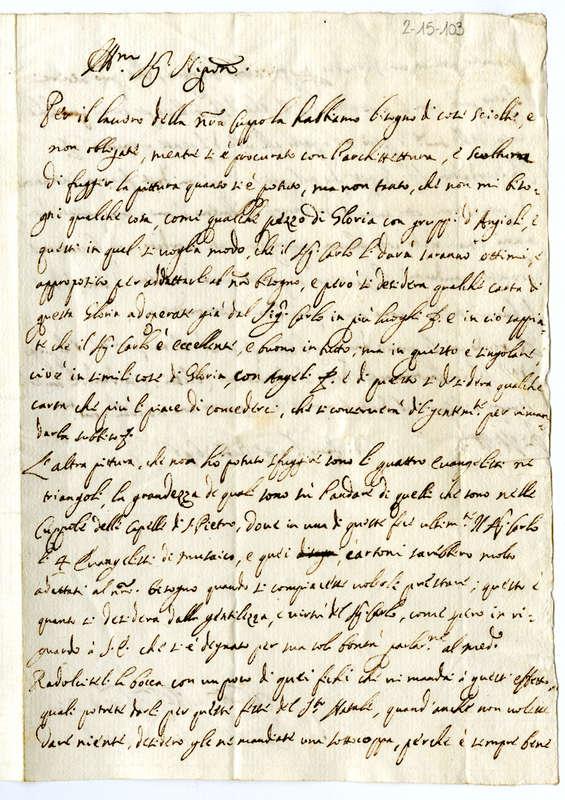 2-15-103
Illmo. Sig. Nipote.
Per il lavoro della nra Cupola habbiamo bisogno di cose sciolte, e
non obligate, mentre si è procurato con l'archittettura, e scoltura
di fuggir la pittura quanto si è potuto, ma non tanto, che non mi biso-
gni qualche cosa, come qualche pezzo di Gloria con gruppi d'Angioli, e
questi in qual si voglia modo, che il Sig. Carlo li darà saranno ottimi, e
appropotito per addattarle al nro bisogno, e però si desidera qualche carta di
questa Gloria adoperate già dal Sig. Carlo in più luoghi e in ciò sappia-
te che il Sig. Carlo è eccellente, e buono in tutto, ma in questo è singolare
cioè in simili cose di Gloria, con Angeli e di questo si desidera qualche
carta che più li piace di concederci, che si conserverà diligentemte per riman-
darla subito
L'altra pittura, che non hò potuto sfuggire sono li quattro Evangelisti ne
triangoli, la grandezza de quali sono sù l'andare di quelli che sono nelle
Cuppole delle Capelle di S. Pietro, dove in una di queste fece ultimte Il Sig. Carlo
li 4 Evangelisti di musaico, e quei cartoni sarebbero molto
adattati al nro bisogno quando si compiacesse volerli prestare; questo è
quanto si desidera dalla gentilezza, e virtù del Sig. Carlo, come pero in ri-
guardo à S.E. che si è degnato per sua sola bontà parlarne al medo
Radolciteli la bocca con un poco di quei fichi che vi manda à questi effetto,
quali potrete darli per queste feste del Sto Natale, quand'anche non volesse
dare niente, desidero che ne mandiate una sottocoppa, perche è sempre bene